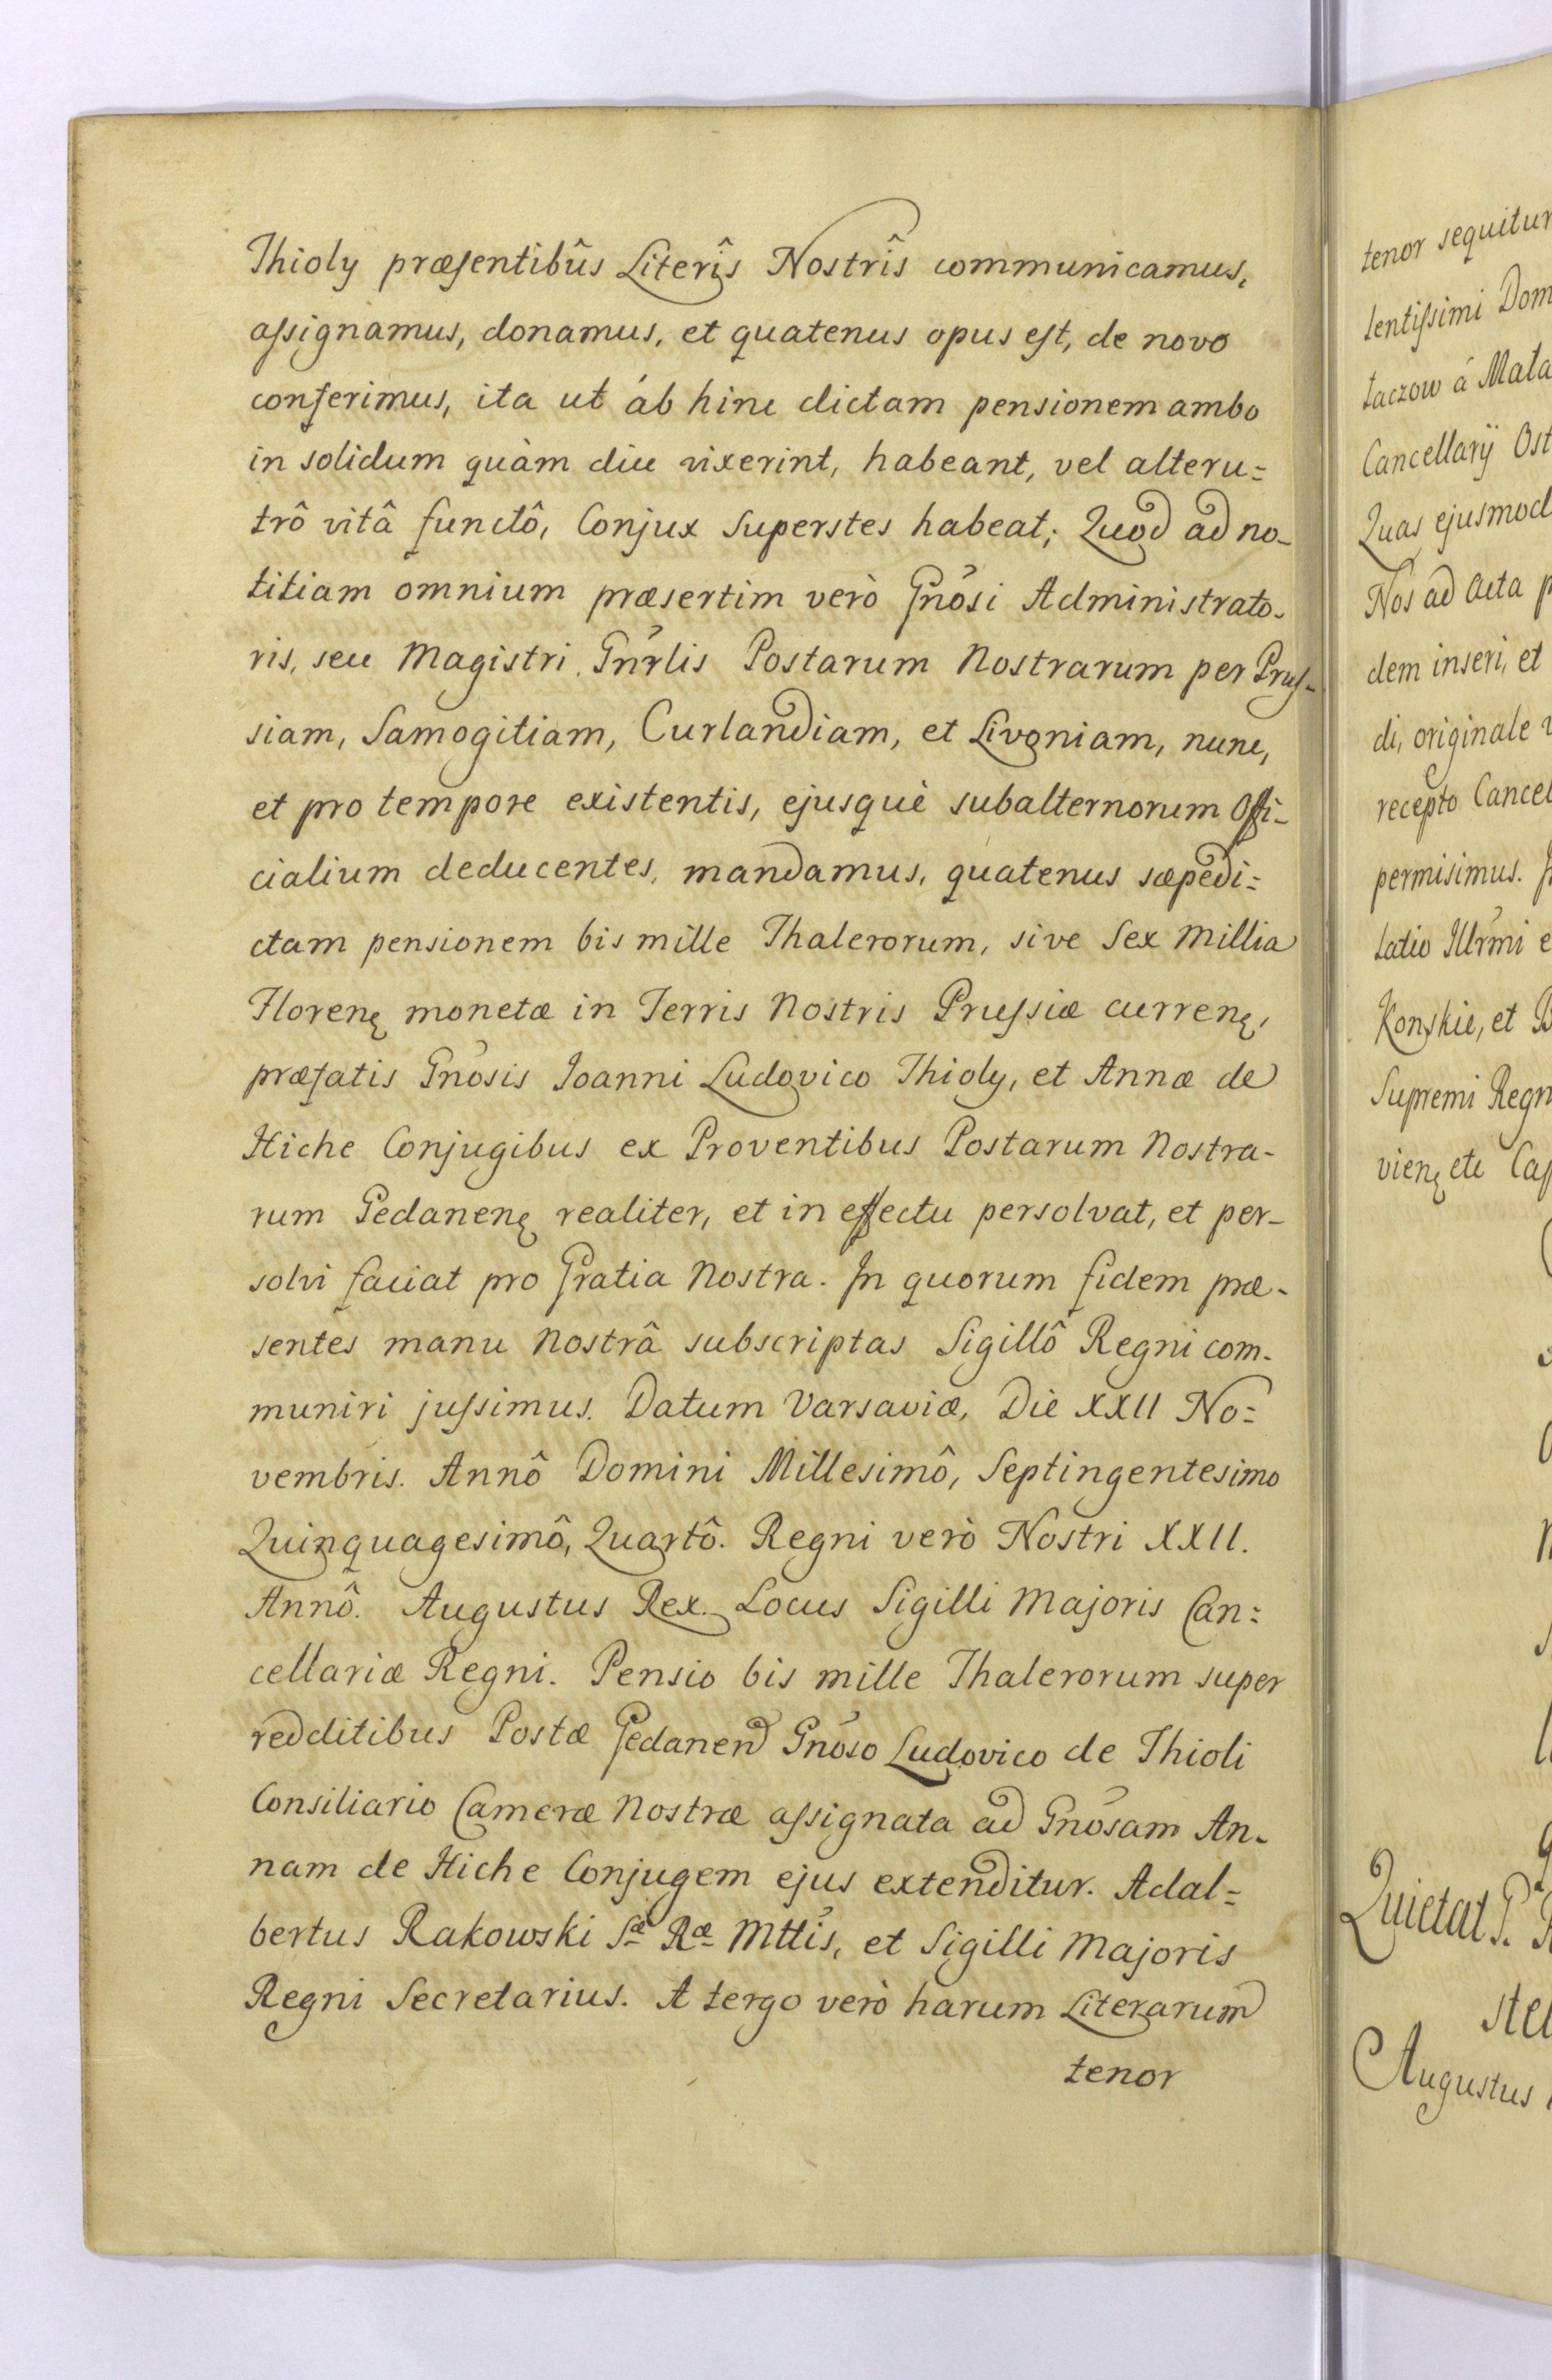 Thioly præsentibûs Literîs Nostrîs communicamus,
assignamus, donamus, et quatenus opus est, de novo
conferimus, ita ut áb hinc dictam pensionem ambo
in solidum quàm diu vixerint, habeant, vel alteru=
trô vitâ functô, Conjux Superstes habeat; Quod ad no-
titiam omnium præsertim verò Gnõsi Administrato-
ris, seu Magistri Gnrlis Postarum Nostrarum per Prus-
siam, Samogitiam, Curlandiam, et Livoniam, nunc,
et pro tempore existentis, ejusquè subalternorum Offi-
cialium deducentes, mandamus, quatenus sæpedi=
ctam pensionem bis mille Thalerorum, sive Sex Millia
Florenę monetæ in Terris Nostris Prussiæ currenę,
præfatis Gnõsis Joanni Ludovico Thioly, et Annæ de
Hiche Conjugibus ex Proventibus Postarum Nostra-
rum Gedanenę realiter, et in effectu persolvat, et per-
solvi faciat pro Gratia Nostra. In quorum fidem præ-
sentes manu Nostrâ subscriptas Sigillô Regni com-
muniri jussimus. Datum Varsaviæ, Die XXII No=
vembris. Annô Domini Millesimô, Septingentesimo
Quinquagesimô, Quartô. Regni verò Nostri XXII.
Annô. Augustus Rex. Locus Sigilli Majoris Can=
cellariæ Regni. Pensio bis mille Thalerorum super
redditibus Postæ Gedanen Gnõso Ludovico de Thioli
Consiliario Cameræ Nostræ assignata ad Gnõsam An-
nam de Hiche Conjugem ejus extenditur. Adal=
bertus Rakowski Sæ Ræ Mttis, et Sigilli Majoris
Regni Secretarius. A tergo verò harum Literarum
tenor
tenor sequitur
lentissimi Dom
taczow á Mała
Cancellarÿ Ost
Quas ejusmod
Nos ad Acta p
dem inseri, et
di, originale v
recepto Cancel
permisimus.
latio Illrmi e
Konskie, et B
Supremi Regn
vienę etc Cap
Quietat P.
stel
Augustus